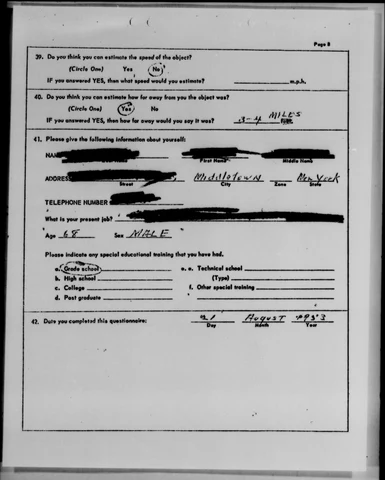 Page 8
39. Do you think you can estimate the speed of the object?
(Circle One) Yes No
IF you answered YES, then what speed would you estimate? m.p.h.
40. Do you think you can estimate how far away from you the object was?
(Circle One) Yes No
IF you answered YES, then how far away would you say it was? 3-4 MILES
41. Please give the following information about yourself:
NAME
First Name Middle Name
ADDRESS MIDDLETOWN New York
Street City Zone State
TELEPHONE NUMBER
What is your present job?
Age 68 Sex MALE
Please indicate any special educational training that you have had.
a. Grade school e. Technical school
b. High school (Type)
c. College f. Other special training
d. Post graduate
42. Date you completed this questionnaire: 21 August 1953
Day Month Year